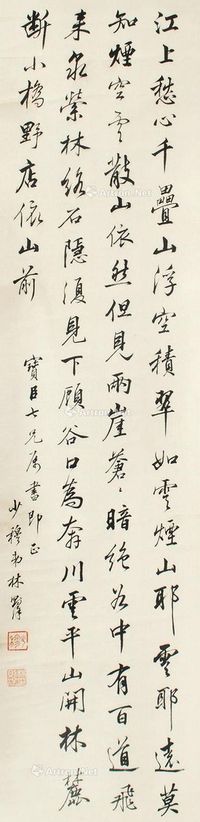 江上愁心千疊山浮空積翠如雲煙山耶雲耶遠莫
知煙空雲散山依然但見兩崖蒼〻暗絕谷中有百道飛
來泉縈林絡石隱復見下顧谷口為奔川雲平山開林麓
斷小橋野店依山前
寶臣七兄屬書即正
少穆弟林則徐